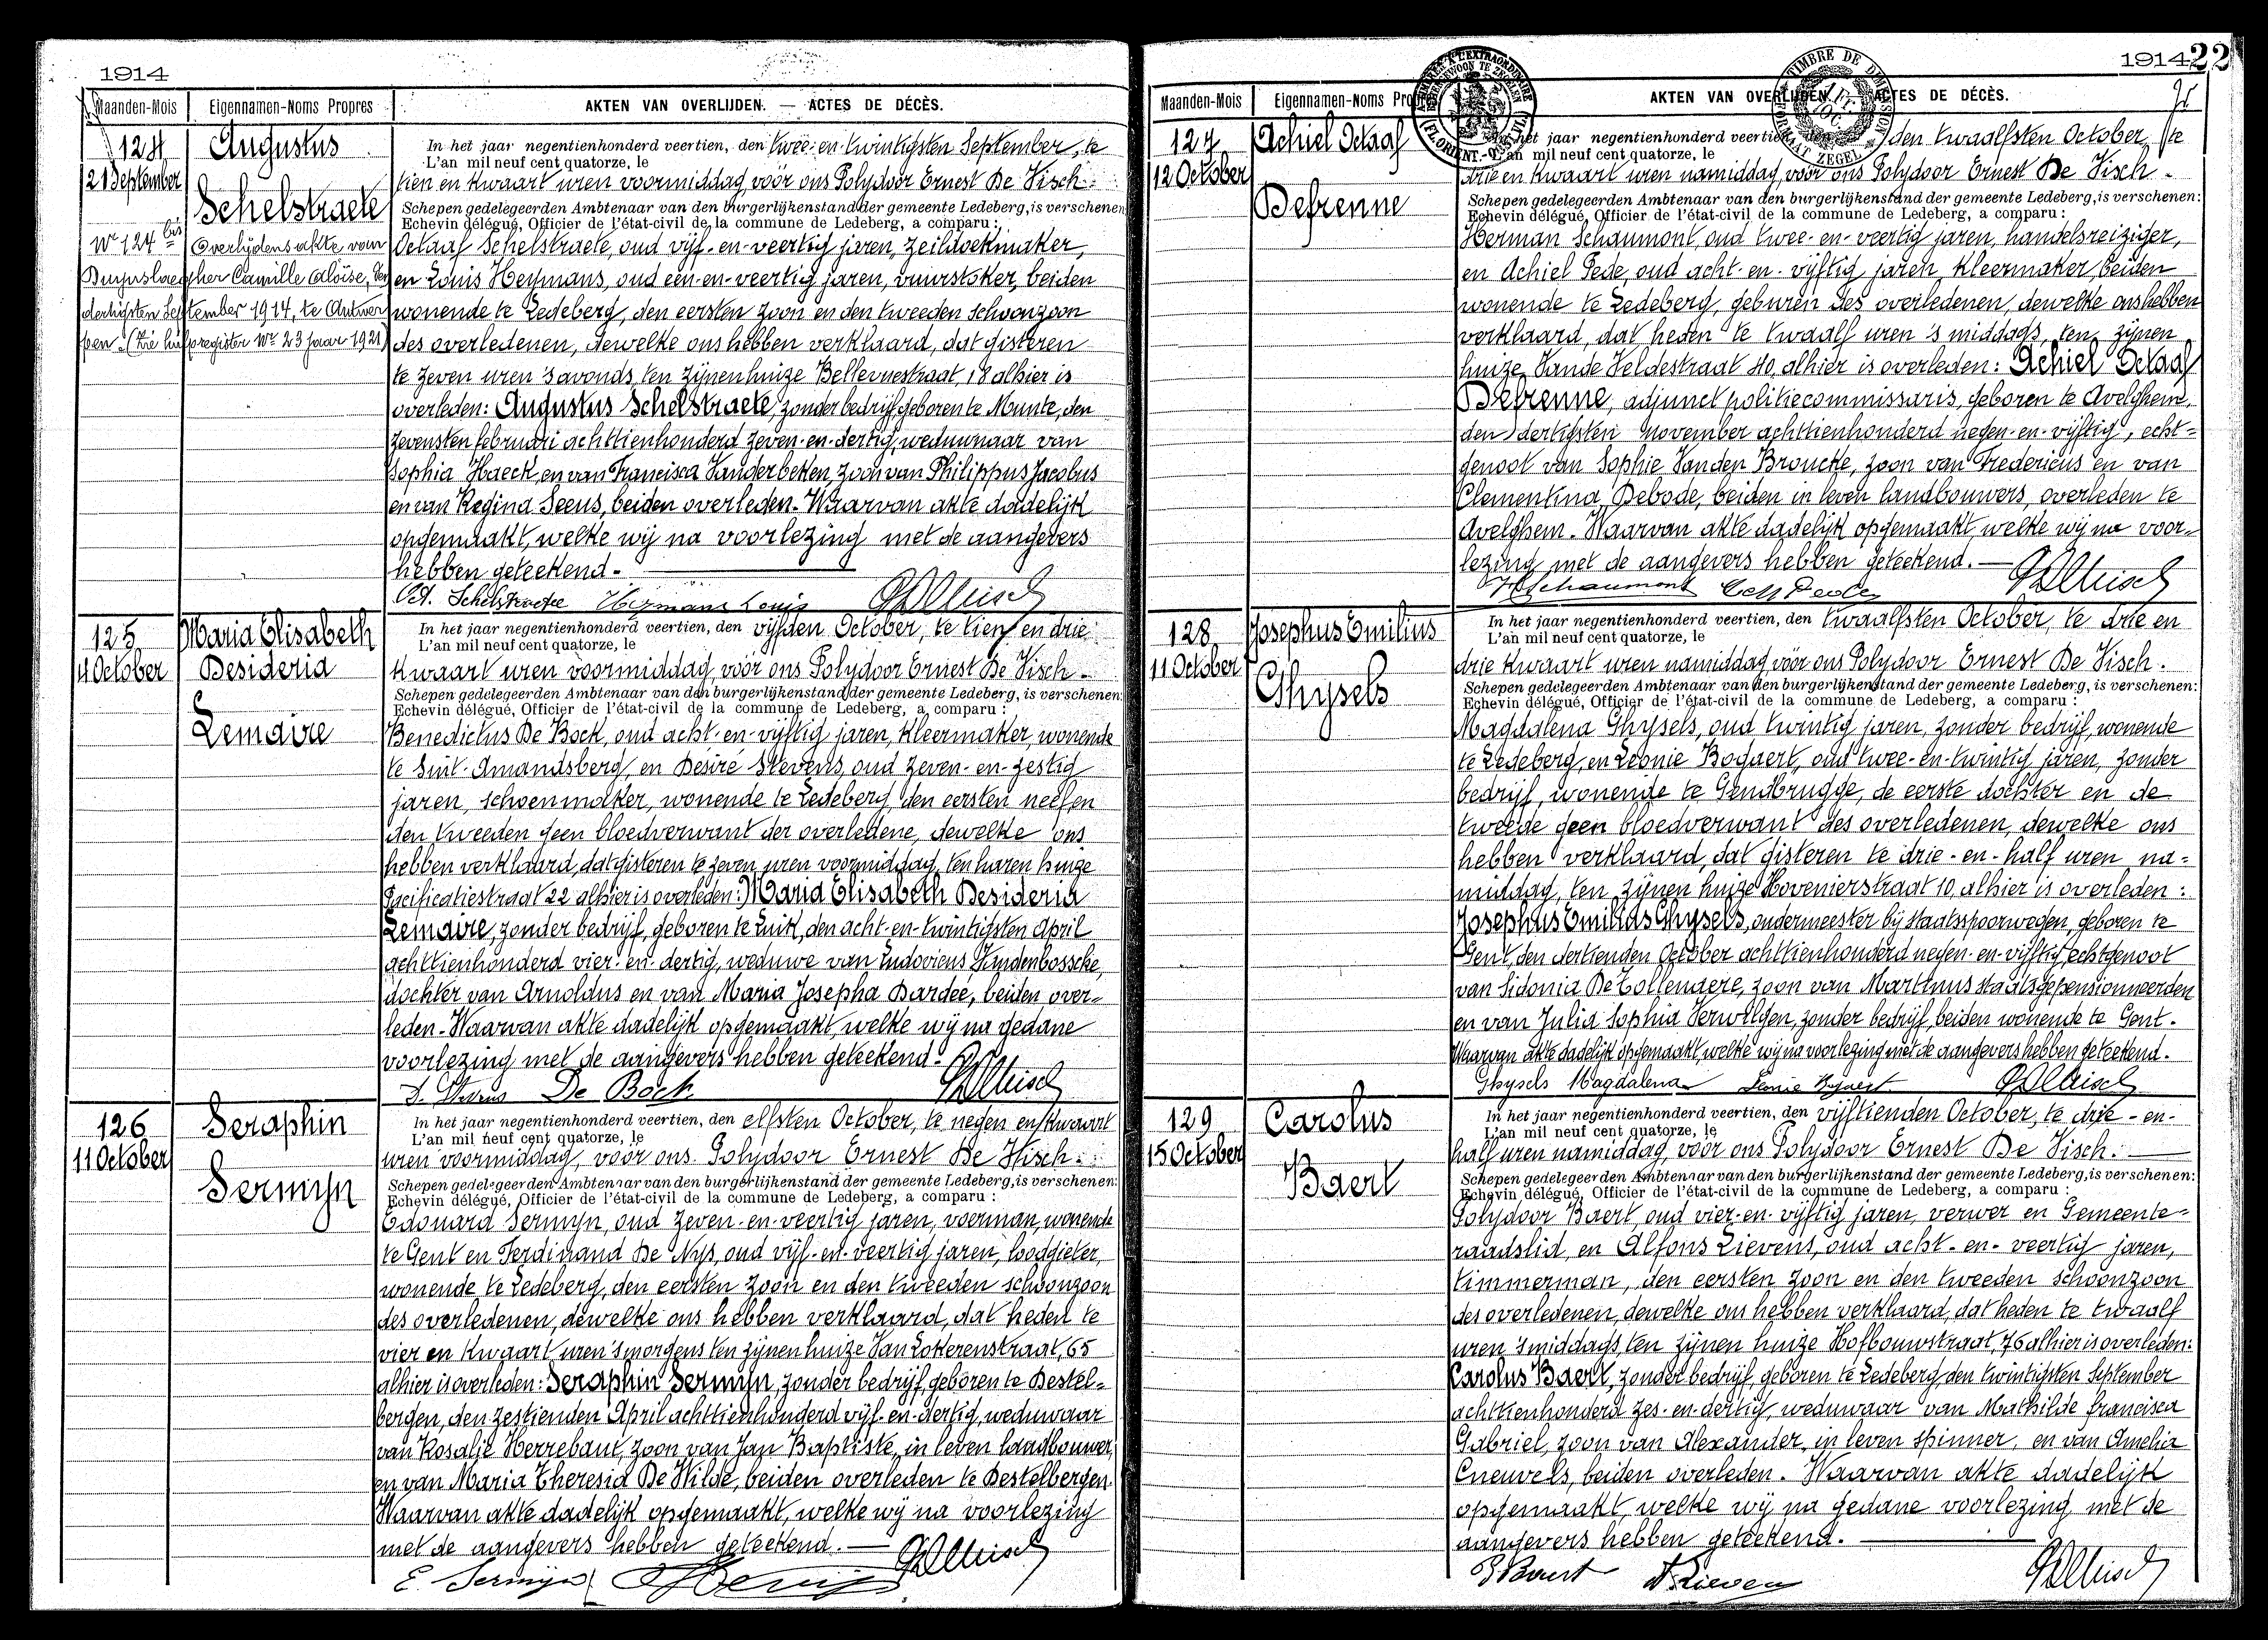 1914
Maanden-Mois Eigennamen-Noms Propres AKTEN VAN OVERLIJDEN. — ACTES DE DÉCÈS.
124
21 September
Augustus
Schelstraete
Nr 124 bis Overlijdensakte van
Camille Aloïse, den
dertigsten September 1914, te Antwer
pen. (Zie hulpregister Nr 23 jaar 1921)
In het jaar negentienhonderd veertien, den twee-en-twintigsten September, te
L'an mil neuf cent quatorze, le
tien en kwaart uren voormiddag, vóór ons Polydoor Ernest De Visch.
Schepen gedelegeerden Ambtenaar van den burgerlijkenstand der gemeente Ledeberg, is verschenen
Echevin délégué, Officier de l'état-civil de la commune de Ledeberg, a comparu :
Octaaf Schelstraete, oud vijf-en-veertig jaren, zeildoekmaker,
en Louis Heymans, oud een-en-veertig jaren, vuurstoker, beiden
wonende te Ledeberg, den eersten zoon en den tweeden schoonzoon
des overledenen, dewelke ons hebben verklaard, dat gisteren
te zeven uren 's avonds, ten zijnen huize Bellevuestraat, 18 alhier is
overleden: Augustus Schelstraete, zonder bedrijf, geboren te Munte, den
zevensten februari achttienhonderd zeven-en-dertig, weduwnaar van
Sophia Haeck, en van Francisca Vanderbeken, zoon van Philippus Jacobus
en van Regina Seeus, beiden overleden. Waarvan akte dadelijk
opgemaakt, welke wij na voorlezing met de aangevers
hebben geteekend.
Oct. Schelstraete Heymans Louis
125
4 October
Maria Elisabeth
Desideria
Lemaire
In het jaar negentienhonderd veertien, den vijfden October, te tien en drie
L'an mil neuf cent quatorze, le
kwaart uren voormiddag, vóór ons Polydoor Ernest De Visch.
Schepen gedelegeerden Ambtenaar van den burgerlijkenstand der gemeente Ledeberg, is verschenen:
Echevin délégué, Officier de l'état-civil de la commune de Ledeberg, a comparu :
Benedictus De Bock, oud acht-en-vijftig jaren, kleermaker, wonende
te Sint-Amandsberg, en Desiré Stevens, oud zeven-en-zestig
jaren, schoenmaker, wonende te Ledeberg, den eersten neef en
den tweeden geen bloedverwant der overledene, dewelke ons
hebben verklaard, dat gisteren te zeven uren voormiddag, ten haren huize
Pacificatiestraat 22 alhier is overleden: Maria Elisabeth Desideria
Lemaire, zonder bedrijf, geboren te Luik, den acht-en-twintigsten April
achttienhonderd vier-en-dertig, weduwe van Ludovicus Vandenbossche,
dochter van Arnoldus en van Maria Josepha Dardée, beiden over-
leden. Waarvan akte dadelijk opgemaakt, welke wij na gedane
voorlezing met de aangevers hebben geteekend.
D. Stevens De Bock
126
11 October
Seraphin
Sermijn
In het jaar negentienhonderd veertien, den elfsten October, te negen en kwaart
L'an mil neuf cent quatorze, le
uren voormiddag, vóór ons Polydoor Ernest De Visch.
Schepen gedelegeerden Ambtenaar van den burgerlijkenstand der gemeente Ledeberg, is verschenen:
Echevin délégué, Officier de l'état-civil de la commune de Ledeberg, a comparu :
Edouard Sermijn, oud zeven-en-veertig jaren, voerman, wonende
te Gent en Ferdinand De Nys, oud vijf-en-veertig jaren, loodgieter,
wonende te Ledeberg, den eersten zoon en den tweeden schoonzoon
des overledenen, dewelke ons hebben verklaard, dat heden te
vier en kwaart uren 's morgens ten zijnen huize Van Lokerenstraat, 65
alhier is overleden: Seraphin Sermijn, zonder bedrijf, geboren te Destel-
bergen, den zestienden April achttienhonderd vijf-en-dertig, weduwaar
van Rosalie Herrebaut, zoon van Jan Baptiste, in leven landbouwer,
en van Maria Theresia De Wilde, beiden overleden te Destelbergen.
Waarvan akte dadelijk opgemaakt, welke wij na voorlezing
met de aangevers hebben geteekend.
E. Sermijn
1914 22
Maanden-Mois Eigennamen-Noms Propres AKTEN VAN OVERLIJDEN. — ACTES DE DÉCÈS.
127
12 October
Achiel Octaaf
Defrenne
In het jaar negentienhonderd veertien, den twaalfsten October, te
L'an mil neuf cent quatorze, le
drie en kwaart uren namiddag, vóór ons Polydoor Ernest De Visch.
Schepen gedelegeerden Ambtenaar van den burgerlijkenstand der gemeente Ledeberg, is verschenen:
Echevin délégué, Officier de l'état-civil de la commune de Ledeberg, a comparu :
Herman Schaumont, oud twee-en-veertig jaren, handelsreiziger,
en Achiel Pede, oud acht-en-vijftig jaren, kleermaker, beiden
wonende te Ledeberg, geburen des overledenen, dewelke ons hebben
verklaard, dat heden te twaalf uren 's middags, ten zijnen
huize Vande Veldestraat 40, alhier is overleden: Achiel Octaaf
Defrenne, adjunct politiecommissaris, geboren te Avelghem,
den dertigsten november achttienhonderd negen-en-vijftig, echt=
genoot van Sophie Vanden Broucke, zoon van Fredericus en van
Clementina Debode, beiden in leven landbouwers, overleden te
Avelghem. Waarvan akte dadelijk opgemaakt, welke wij na voor-
lezing met de aangevers hebben geteekend.
H Schaumont
128
11 October
Josephus Emilius
Ghysels
In het jaar negentienhonderd veertien, den twaalfsten October, te drie en
L'an mil neuf cent quatorze, le
drie kwaart uren namiddag, vóór ons Polydoor Ernest De Visch.
Schepen gedelegeerden Ambtenaar van den burgerlijkenstand der gemeente Ledeberg, is verschenen:
Echevin délégué, Officier de l'état-civil de la commune de Ledeberg, a comparu :
Magdalena Ghysels, oud twintig jaren, zonder bedrijf, wonende
te Ledeberg, en Leonie Bogaert, oud twee-en-twintig jaren, zonder
bedrijf, wonende te Gendbrugge, de eerste dochter en de
tweede geen bloedverwant des overledenen, dewelke ons
hebben verklaard, dat gisteren te drie-en-half uren na=
middag, ten zijnen huize Hovenierstraat 10, alhier is overleden:
Josephus Emilius Ghysels, ondermeester bij staatsspoorwegen, geboren te
Gent, den dertienden October achttienhonderd negen-en-vijftig, echtgenoot
van Sidonia De Tollenaere, zoon van Martinus staatsgepensionneerden
en van Julia Sophia Verwilgen, zonder bedrijf, beiden wonende te Gent.
Waarvan akte dadelijk opgemaakt, welke wij na voorlezing met de aangevers hebben geteekend.
Ghysels Magdalena
129
15 October
Carolus
Baert
In het jaar negentienhonderd veertien, den vijftienden October, te drie-en-
L'an mil neuf cent quatorze, le
half uren namiddag, vóór ons Polydoor Ernest De Visch.
Schepen gedelegeerden Ambtenaar van den burgerlijkenstand der gemeente Ledeberg, is verschenen:
Echevin délégué, Officier de l'état-civil de la commune de Ledeberg, a comparu :
Polydoor Baert, oud vier-en-vijftig jaren, verwer en Gemeente=
raadslid, en Alfons Lievens, oud acht-en-veertig jaren,
timmerman, den eersten zoon en den tweeden schoonzoon
des overledenen, dewelke ons hebben verklaard, dat heden te twaalf
uren 's middags, ten zijnen huize Hofbouwstraat, 76 alhier is overleden:
Carolus Baert, zonder bedrijf, geboren te Ledeberg, den twintigsten September
achttienhonderd zes-en-dertig, weduwaar van Mathilde francisca
Gabriel, zoon van Alexander, in leven spinner, en van Amelia
Cneuvels, beiden overleden. Waarvan akte dadelijk
opgemaakt, welke wij na gedane voorlezing met de
aangevers hebben geteekend.
P Baert A Lieven